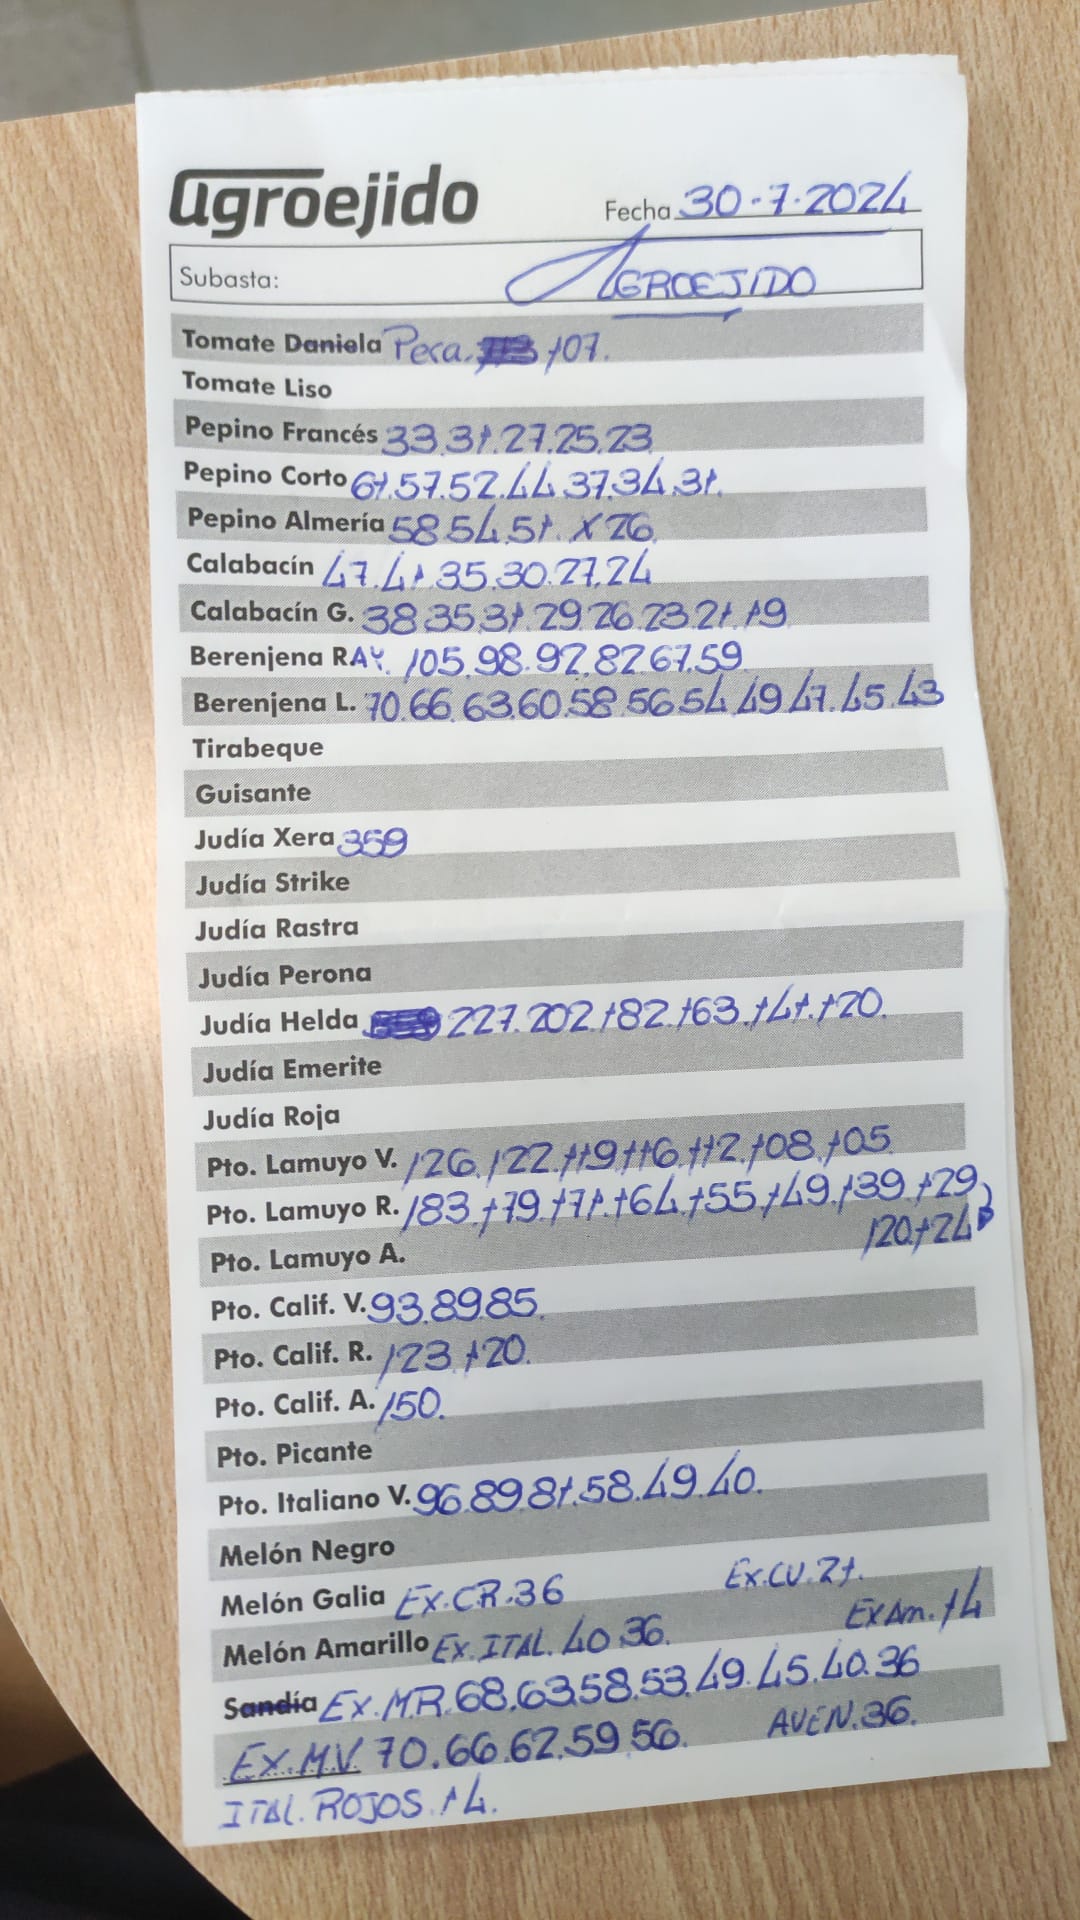 agroejido
Fecha 30-7-2024
Subasta: AGROEJIDO
Tomate Daniela Pera. 107.
Tomate Liso
Pepino Francés 33.31.27.25.23
Pepino Corto 61.57.52.44.37.34.31.
Pepino Almería 58.54.51. X 26.
Calabacín 47.41.35.30.27.24
Calabacín G. 38.35.31.29.26.23.21.19
Berenjena RAY. 105.98.92.82.67.59
Berenjena L. 70.66.63.60.58.56.54.49.47.45.43
Tirabeque
Guisante
Judía Xera 359
Judía Strike
Judía Rastra
Judía Perona
Judía Helda 227.202.182.163.141.120.
Judía Emerite
Judía Roja
Pto. Lamuyo V. 126.122.119.116.112.108.105
Pto. Lamuyo R. 183.179.171.164.155.149.139.129
120.124
Pto. Lamuyo A.
Pto. Calif. V. 93.89.85.
Pto. Calif. R. 123.120.
Pto. Calif. A. 150.
Pto. Picante
Pto. Italiano V. 96.89.81.58.49.40.
Melón Negro
Melón Galia EX.CR.36 EX.CU.21.
Melón Amarillo EX.ITAL. 40.36. EXAm.14
Sandía EX.MR.68.63.58.53.49.45.40.36
EX.M.V. 70.66.62.59.56. AVEN.36.
ITAL. ROJOS.14.